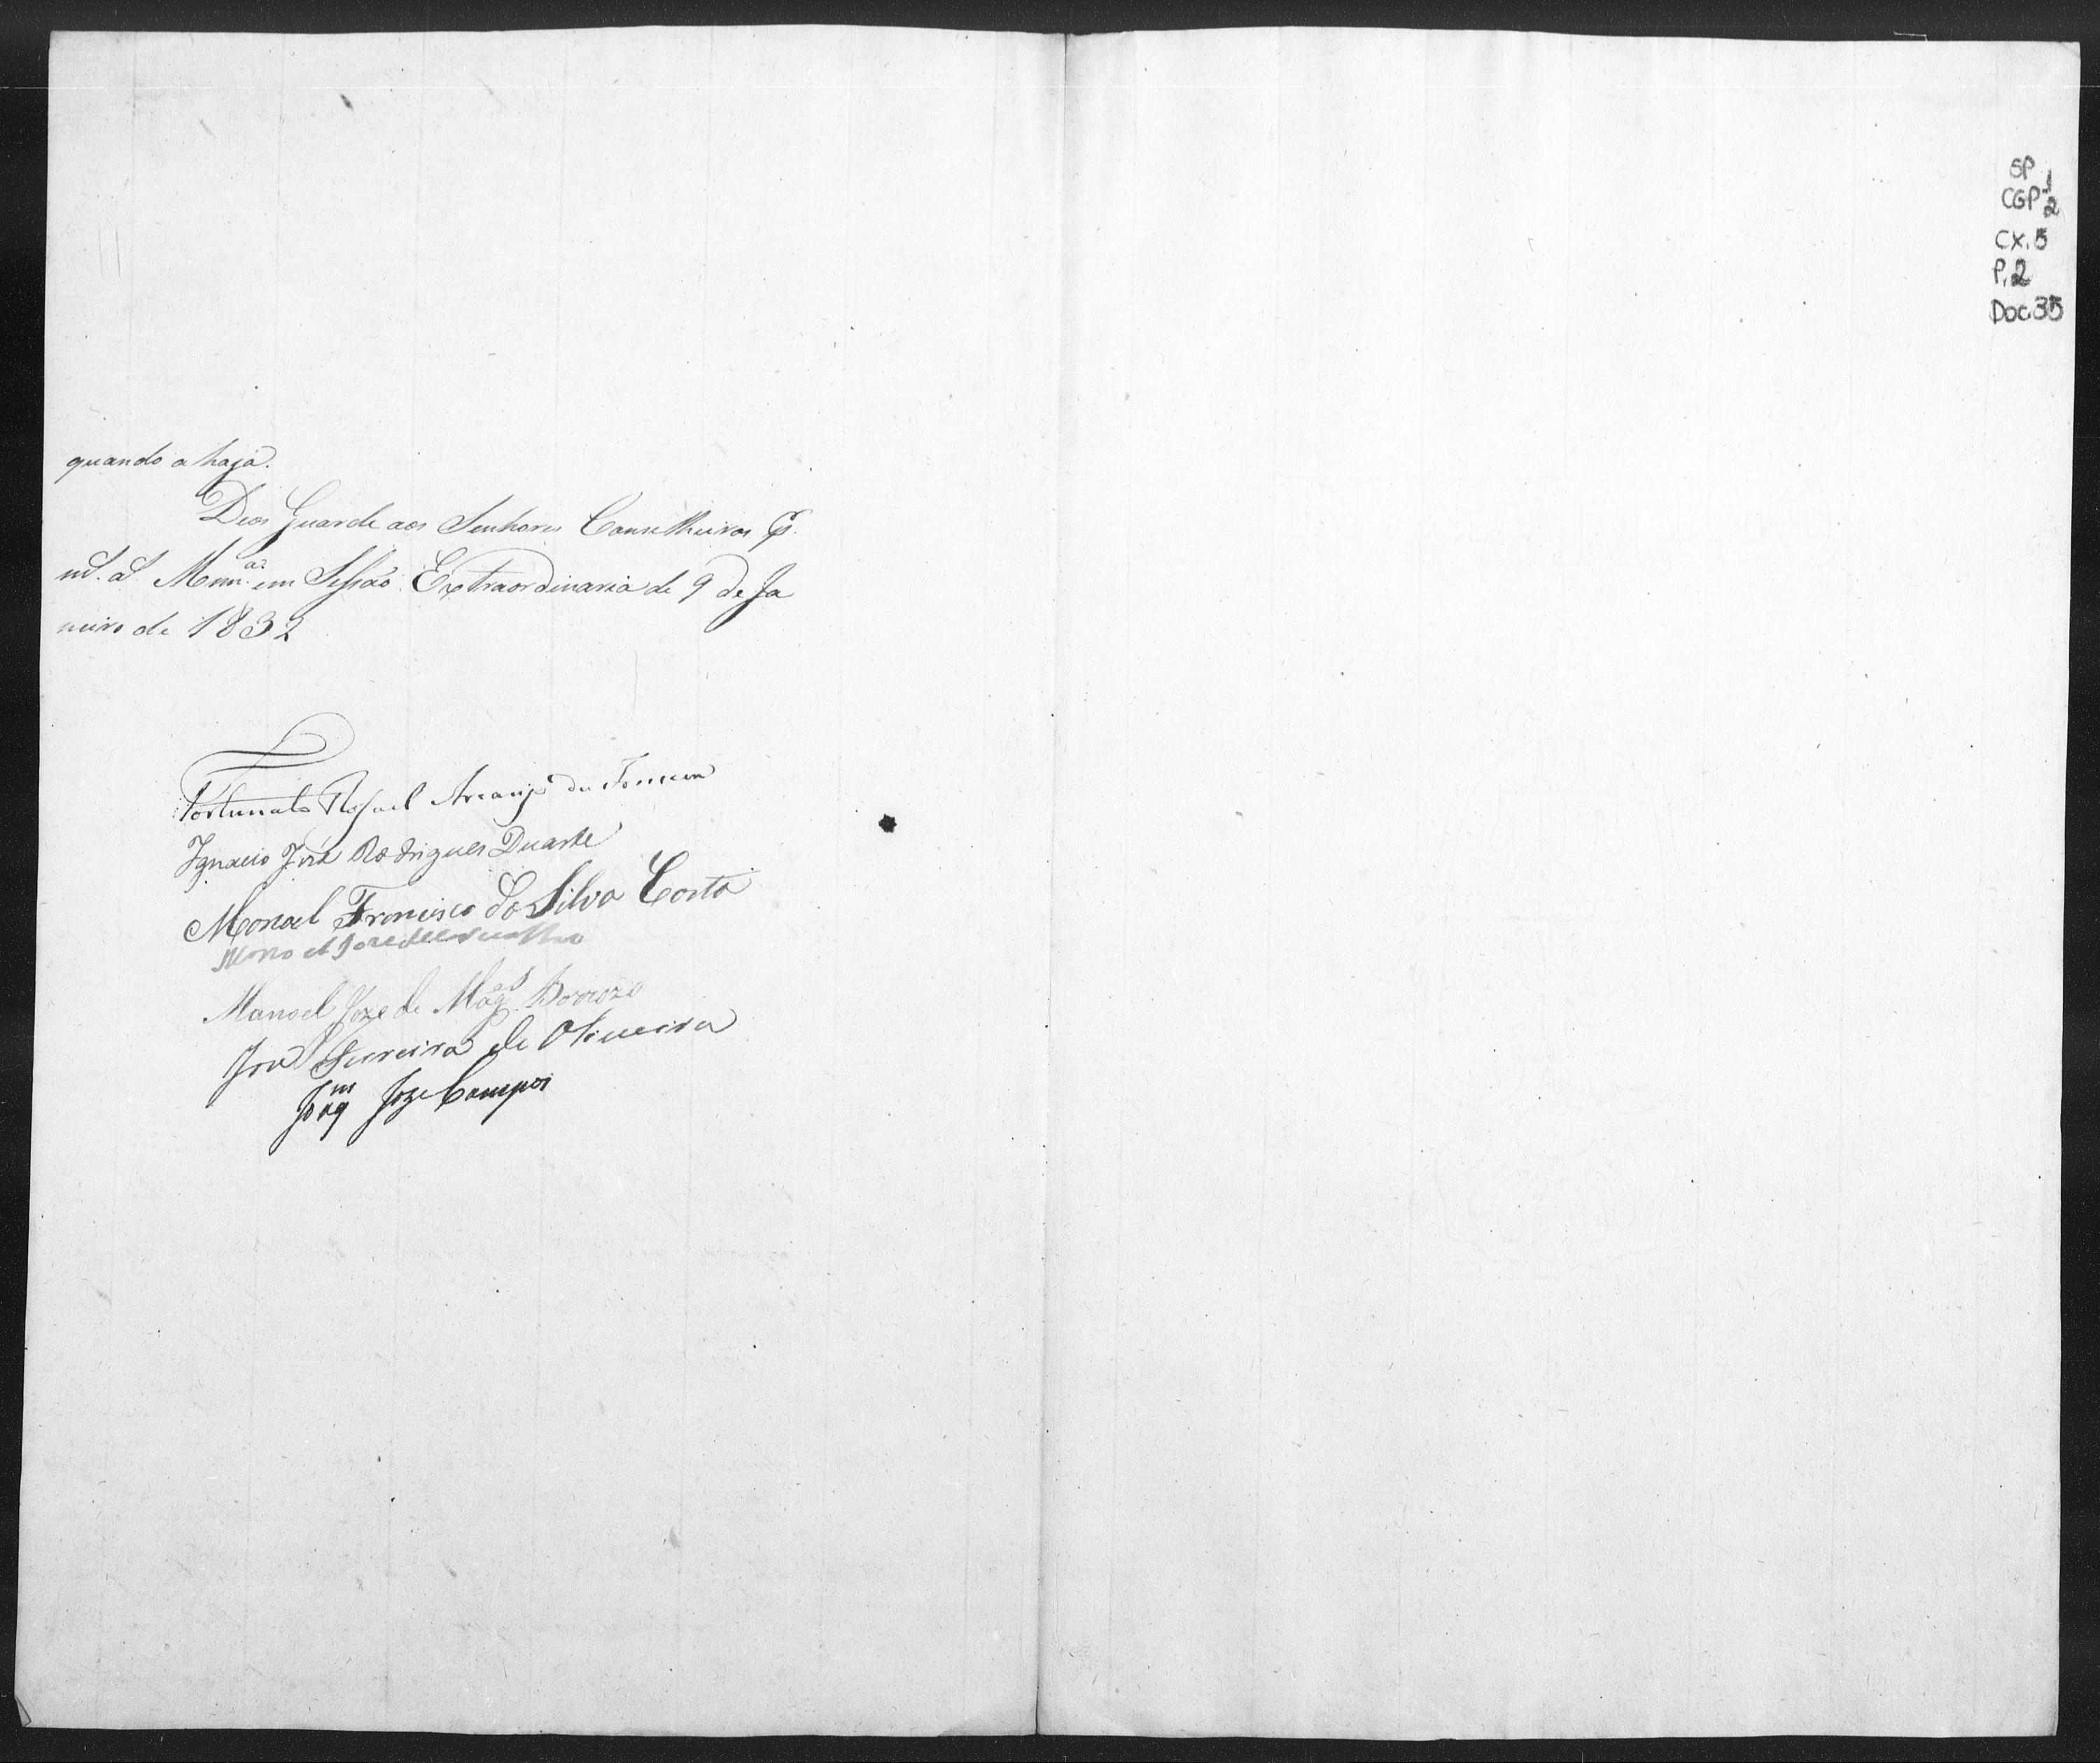 quando a haja.
Deos Guarde aos Senhores Conselheiros
em Sessão Extraordinaria de 9 de Ja
neiro de 1832
Fortunato Rafael Arcanjo da Fonseca
Ignacio José Rodrigues Duarte
Manoel Francisco da Silva Costa
Manoel Joze de Carvalho
Manoel Joze de Mag.es Barrozo
José Ferreira de Oliveira
Joaqm Joze Campos
SP
CGP 1.2
CX. 5
P. 2
Doc 35